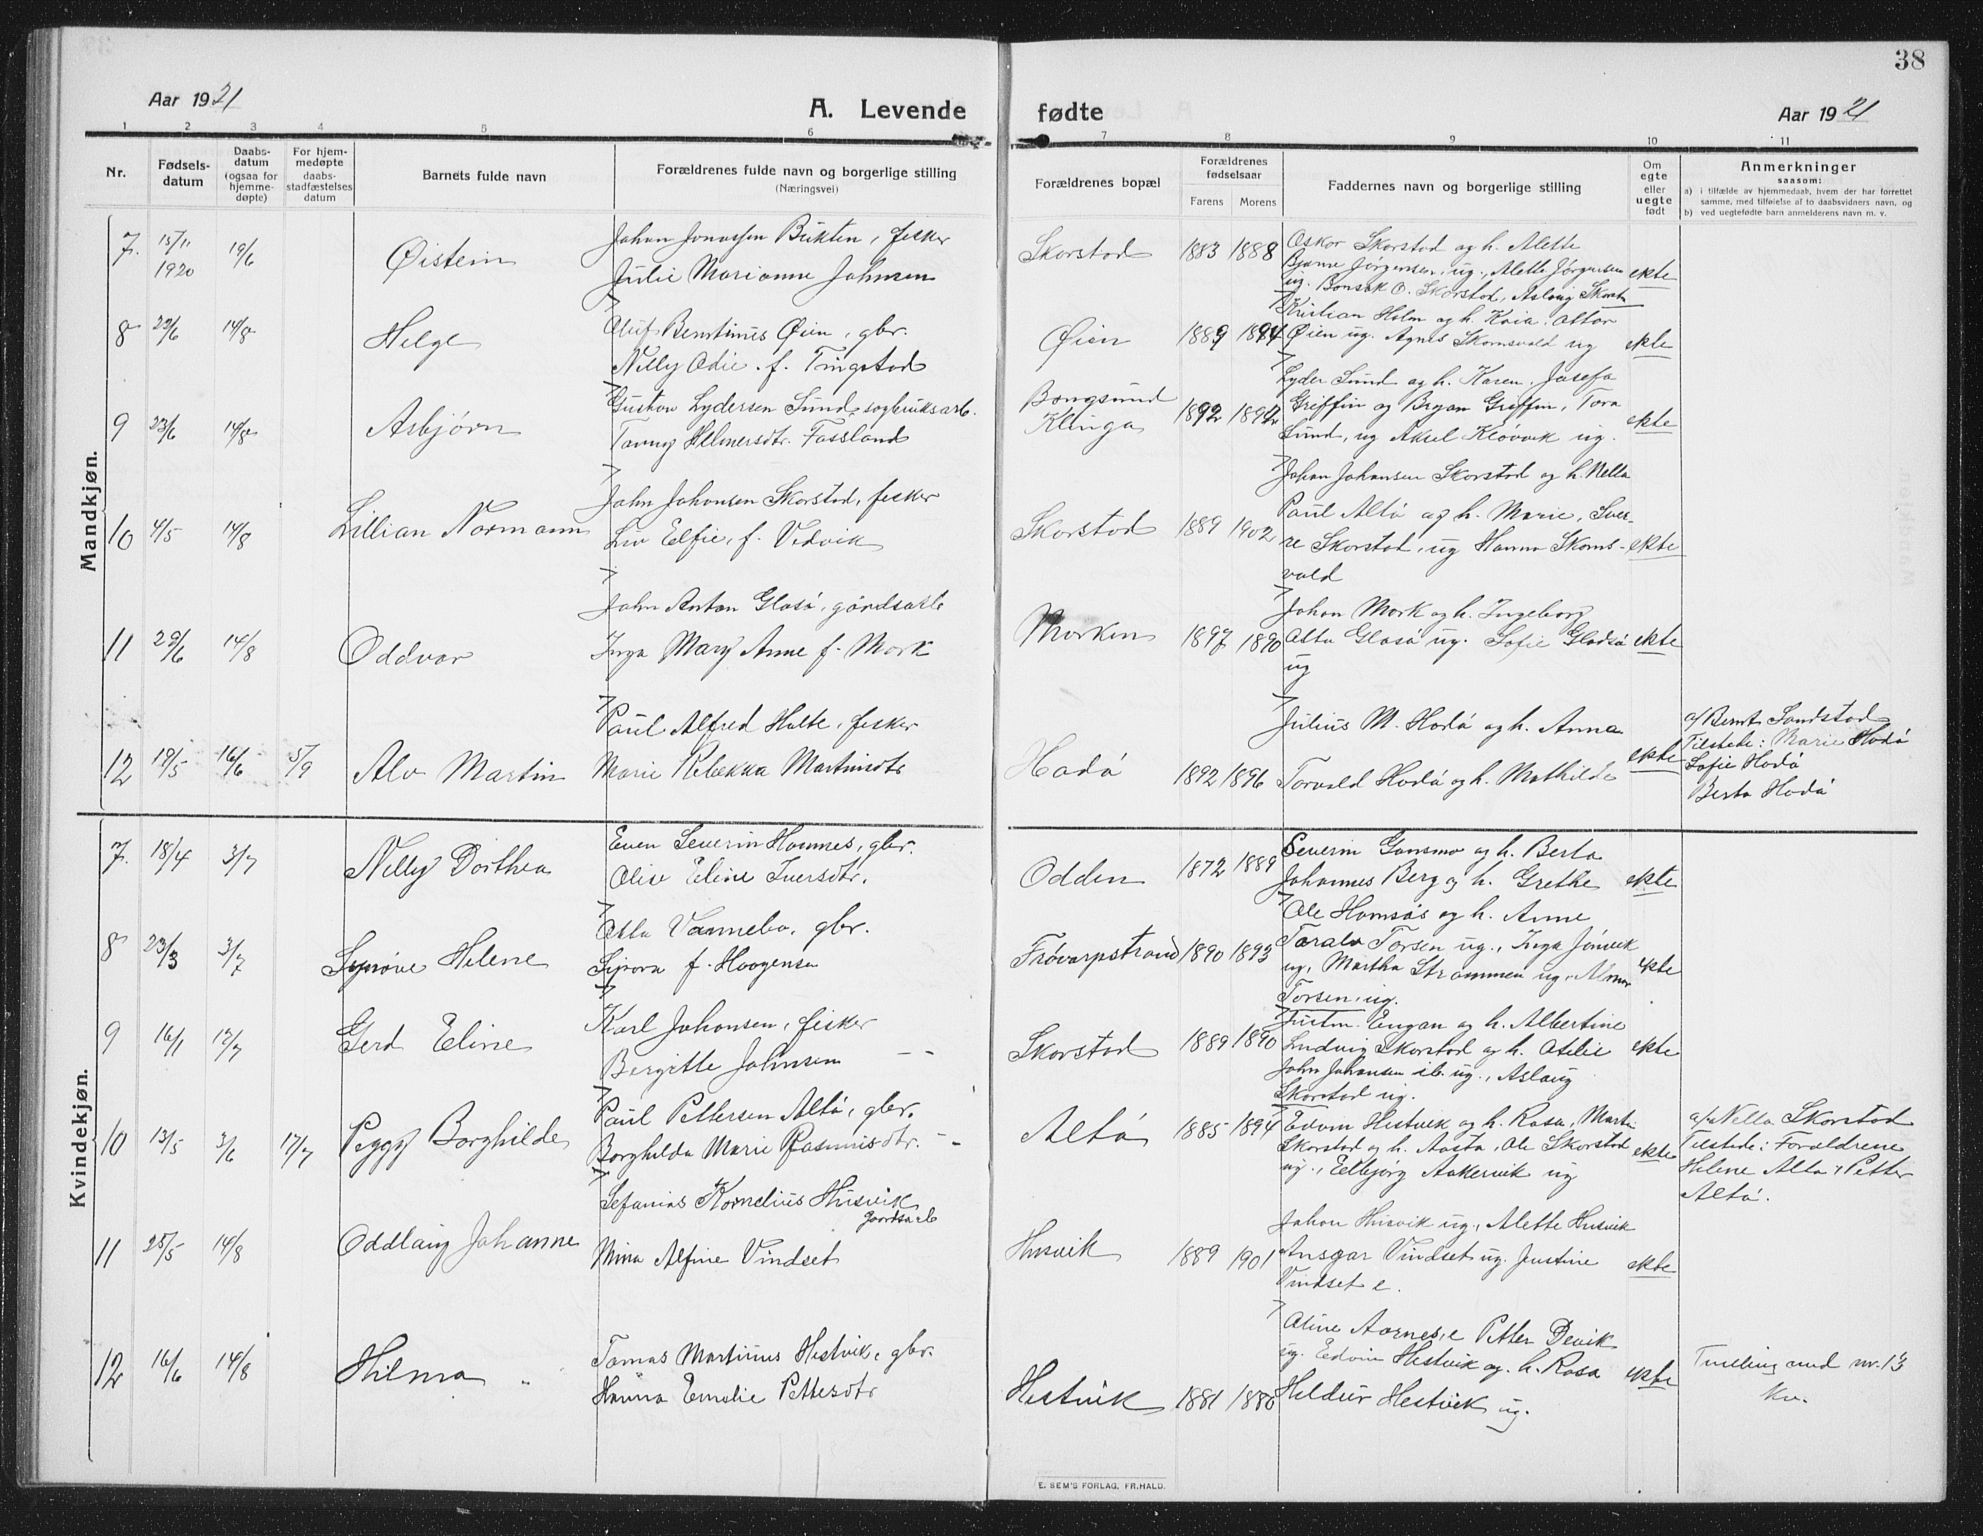 38
Aar 1921
A. Levende fødte
Aar 1921
1 2 3 4 5 6 7 8 9 10 11
Nr.
Fødsels-
datum
Daabs-
datum
(ogsaa for
hjemme-
døpte)
For hjem-
medøpte
daabs-
stadfæstelses
datum
Barnets fulde navn
Forældrenes fulde navn og borgerlige stilling
(Næringsvei)
Forældrenes bopæl
Forældrenes
fødselsaar
Farens Morens
Faddernes navn og borgerlige stilling
Om
egte
eller
uegte
født
Anmerkninger
saasom:
a) i tilfælde av hjemmedaab, hvem der har forrettet
samme, med tilføielse af to daabsvidners navn, og
b) ved uegtefødte barn anmelderens navn m. v.
Mandkjøn.
7. 15/11 1920 19/6 Øistein
Johan Jonassen Bukten, fisker
Julie Marianne Johnsen
Skorstad 1883 1888
Oskar Skorstad og h. Alette
Bjarne Jörgensen, ug., Alette Jörgensen
ug. Bonsak O. Skorstad, Aslaug Skorst
ekte
8 29/6 14/8 Helge
Oluf Berntinus Øien, gbr.
Nelly Odie. f. Tingstad
Øien 1889 1894
Kristian Holm og h. Kaia. Ottar
Øien ug. Agnes Skomsvold ug
ekte
9 23/6 14/8 Asbjørn
Gustav Lydersen Sund, sagbruksarb.
Tanny Helmersdtr. Fossland
Bongsund
Klinga 1892 1894
Lyder Sund og h. Karen. Josefa
Griffin og Bryan Griffin, Tora
Sund, ug Aksel Kløvvik ug.
ekte
10 4/5 14/8 Lillian Normann
John Johansen Skorstad, fisker
Liv Elfie, f. Vedvik
Skorstad 1889 1902
Johan Johansen Skorstad og h. Nella
Paul Altö og h. Marie, Sver-
re Skorstad, ug Hanna Skoms-
vold
ekte
11 29/6 14/8 Oddvar
John Anton Glasö, gårdsarb
Inga Mary Anne f. Mork
Morken 1897 1890
Johan Mork og h. Ingeborg
Otto Glasö ug. Sofie Gladsö
ug
ekte
12 19/5 16/6 5/9 Alv Martin
Paul Alfred Holte, fisker
Marie Rebekka Martinsdtr
Hodö 1892 1896
Julius M. Hodö og h. Anna
Torvald Hodö og h. Mathilde
ekte
a/ Bernt Sandstad
Tilstede: Marie Hodö
Sofie Hodö
Berta Hodö
Kvindekjøn.
7. 18/4 3/7 Nelly Dorthea
Even Severin Homnes, gbr.
Olise Eline Iversdtr.
Odden 1872 1889
Severin Gansmo og h. Berta
Johannes Berg og h. Grethe
Ole Homsås og h. Anne
ekte
8 23/3 3/7 Synöve Helene
Otto Vannebo, gbr.
Sipora f. Haagensen
Frövarpstrand 1890 1893
Taralv Torsen ug., Inga Jönvik
ug, Martha Strömmen ug, Almar
Torsen, ug.
ekte
9 16/1 12/7 Gerd Eline
Karl Johansen, fisker
Bergitte Johnsen
Skorstad 1889 1890
Justm. Engan og h. Albertine
Ludvig Skorstad og h. Otelie
John Johansen ib. ug., Aslaug
Skorstad ug.
ekte
10 13/5 3/6 17/7 Peggy Borghilde
Paul Pettersen Altö, gbr.
Borghilda Marie Rasmusdtr.
Altö 1885 1894
Edvin Hestvik og h. Rosa, Martin
Skorstad og h. Aasta, Ole Skorstad
ug., Eelbjörg Aakervik ug
ekte
a/ Nella Skorstad
Tilstede: Foreldrene
Helene Altö, Petter
Altö.
11 25/5 14/8 Oddlaug Johanne
Sefanias Kornelius Husvik
gaardsarb
Mina Alfine Vindset
Husvik 1889 1901
Johan Husvik ug, Alette Husvik
Ansgar Vindset ug. Justine
Vindset e.
ekte
12 16/6 14/8 Hilma
Tomas Martinus Hestvik, gbr.
Hanna Emelie Pettersdtr
Hestvik 1881 1880
Oline Aarnes, e Petter Devik
ug. Edvin Hestvik og h. Rosa
Heldur Hestvik ug.
ekte
Tvilling med nr. 13
kv.
E. SEM'S FORLAG, FR.HALD.